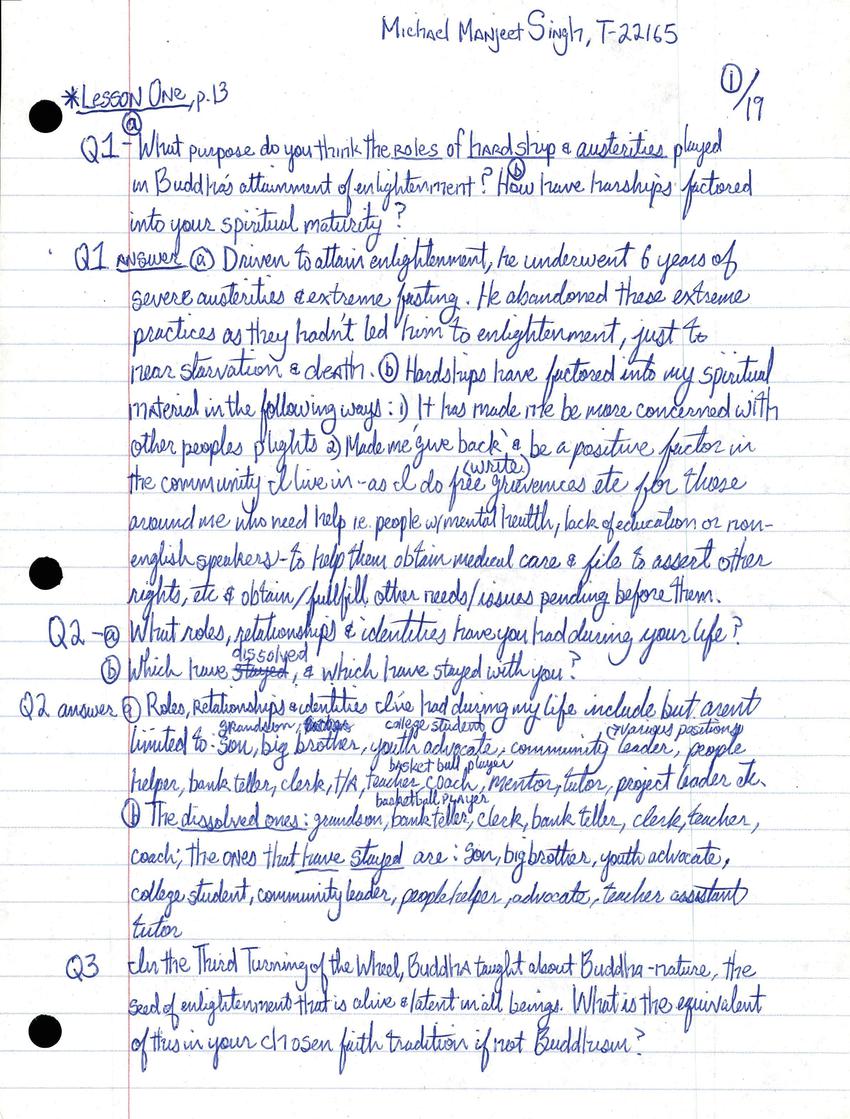 Michael Manjeet Singh, T-22165
1/19
*Lesson One, p.13
Q1 - (a) What purpose do you think the roles of hardship & austerities played
in Buddha's attainment of enlightenment? (b) How have harships factored
into your spiritual maturity?
Q1 answer (a) Driven to attain enlightenment, he underwent 6 years of
severe austerities & extreme fasting. He abandoned these extreme
practices as they hadn't led him to enlightenment, just to
near starvation & death. (b) Hardships have factored into my spiritual
material in the following ways: 1) It has made me be more concerned with
other peoples plights 2) Made me 'give back' & be a positive factor in
(write)
the community I live in - as I do free grievences etc for those
around me who need help ie. people w/mental health, lack of education or non-
english speakers - to help them obtain medical care & file to assert other
rights, etc & obtain/fullfill other needs/issues pending before them.
Q2 - (a) What roles, relationships & identities have you had during your life?
dissolved
(b) Which have stayed, & which have stayed with you?
Q2 answer (a) Roles, relationships & identities I've had during my life include but arent
grandson, college student (various positions)
limited to: Son, big brother, youth advocate, community leader, people
basket ball player
helper, bank teller, clerk, T/A, teacher, coach, mentor, tutor, project leader etc.
basketball player
(b) The dissolved ones: grandson, bank teller, clerk, bank teller, clerk, teacher,
coach; the ones that have stayed are: Son, big brother, youth advocate,
college student, community leader, people helper, advocate, teacher assistant
tutor
Q3 In the Third Turning of the Wheel, Buddha taught about Buddha-nature, the
seed of enlightenment that is alive & latent in all beings. What is the equivalent
of this in your chosen faith tradition if not Buddhism?